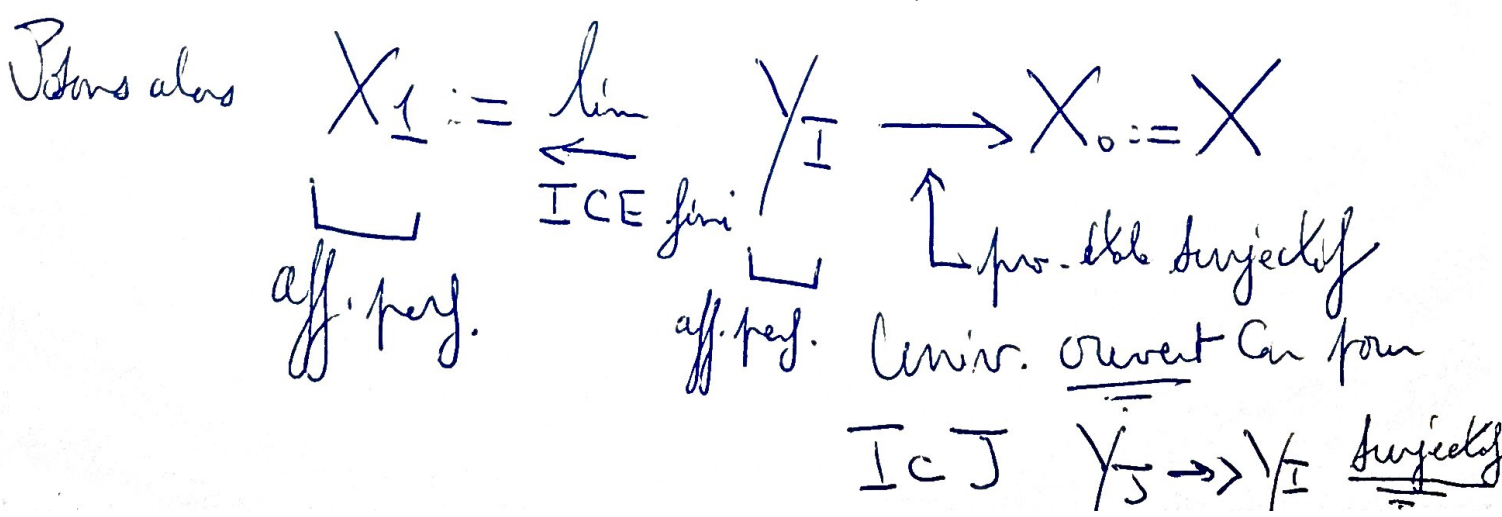 Posons alors X₁ := lim Y_I ⟶ X₀ := X
⟵
I ⊂ E fini
aff. perf. aff. perf. pro-étale surjectif
Univ. ouvert car pour
I ⊂ J Y_J ↠ Y_I surjectif